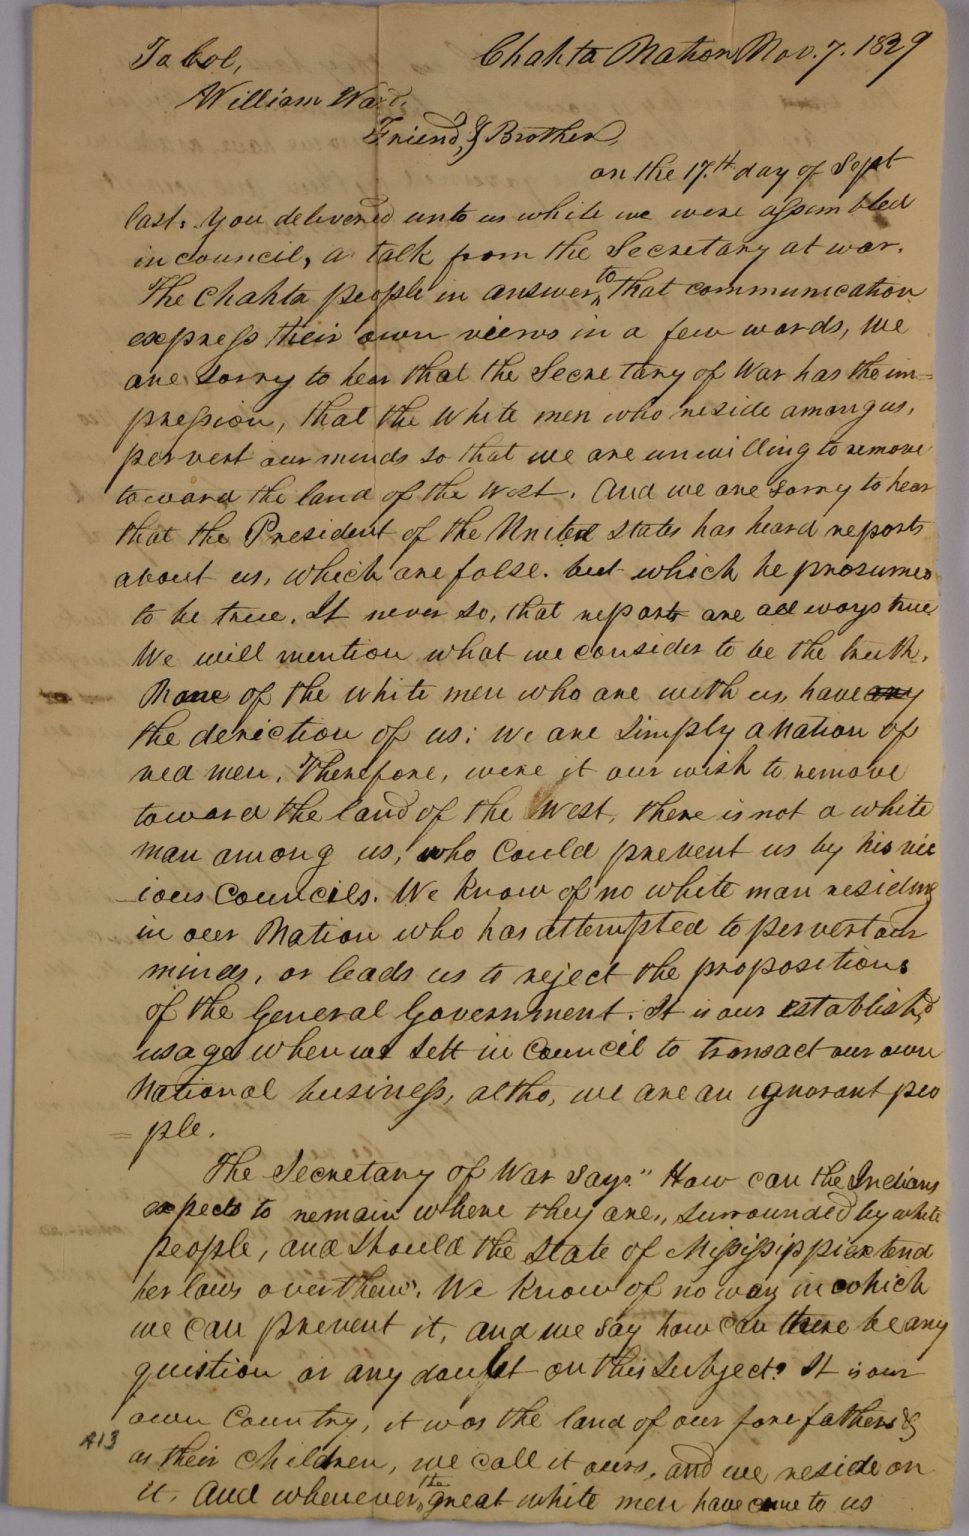 Chahta Nation Nov. 7. 1829
To Col,
William Ward.
Friend, & Brother,
on the 17.th day of Sept
last. You delivered unto us while we were assembled
in council, a talk from the Secretary at war.
The Chahta people in answer to that communication
express their own views in a few words, We
are sorry to hear that the Secretary of War has the im=
pression, that the white men who reside among us,
pervert our minds so that we are unwilling to remove
toward the land of the West. And we are sorry to hear
that the President of the United States has heard reports
about us, which are false. but which he presumes
to be true. It never so, that reports are all ways true
We will mention what we consider to be the truth.
None of the white men who are with us, have any
the deriction of us: We are simply a Nation of
red men, Therefore, were it our wish to remove
toward the land of the West, there is not a white
man among us, who could prevent us by his vic
ious Councils. We know of no white man residing
in our Nation who has attempted to pervert our
minds, or leads us to reject the propositions
of the General Government. It is our establish,d
usage when we sett in Council to transact our own
National business, altho, we are an ignorant peo
=ple.
The Secretary of War says "How can the Indians
expects to remain where they are,, surrounded by white
people, and should the State of Mississippi extend
her laws over them". We know of no way in which
we can prevent it, and we say how can there be any
quistion or any doubt on this subject? It is our
own Country, it was the land of our forefathers &
as their children, we call it ours. and we reside on
it. And whenever the great white men have come to us
A13